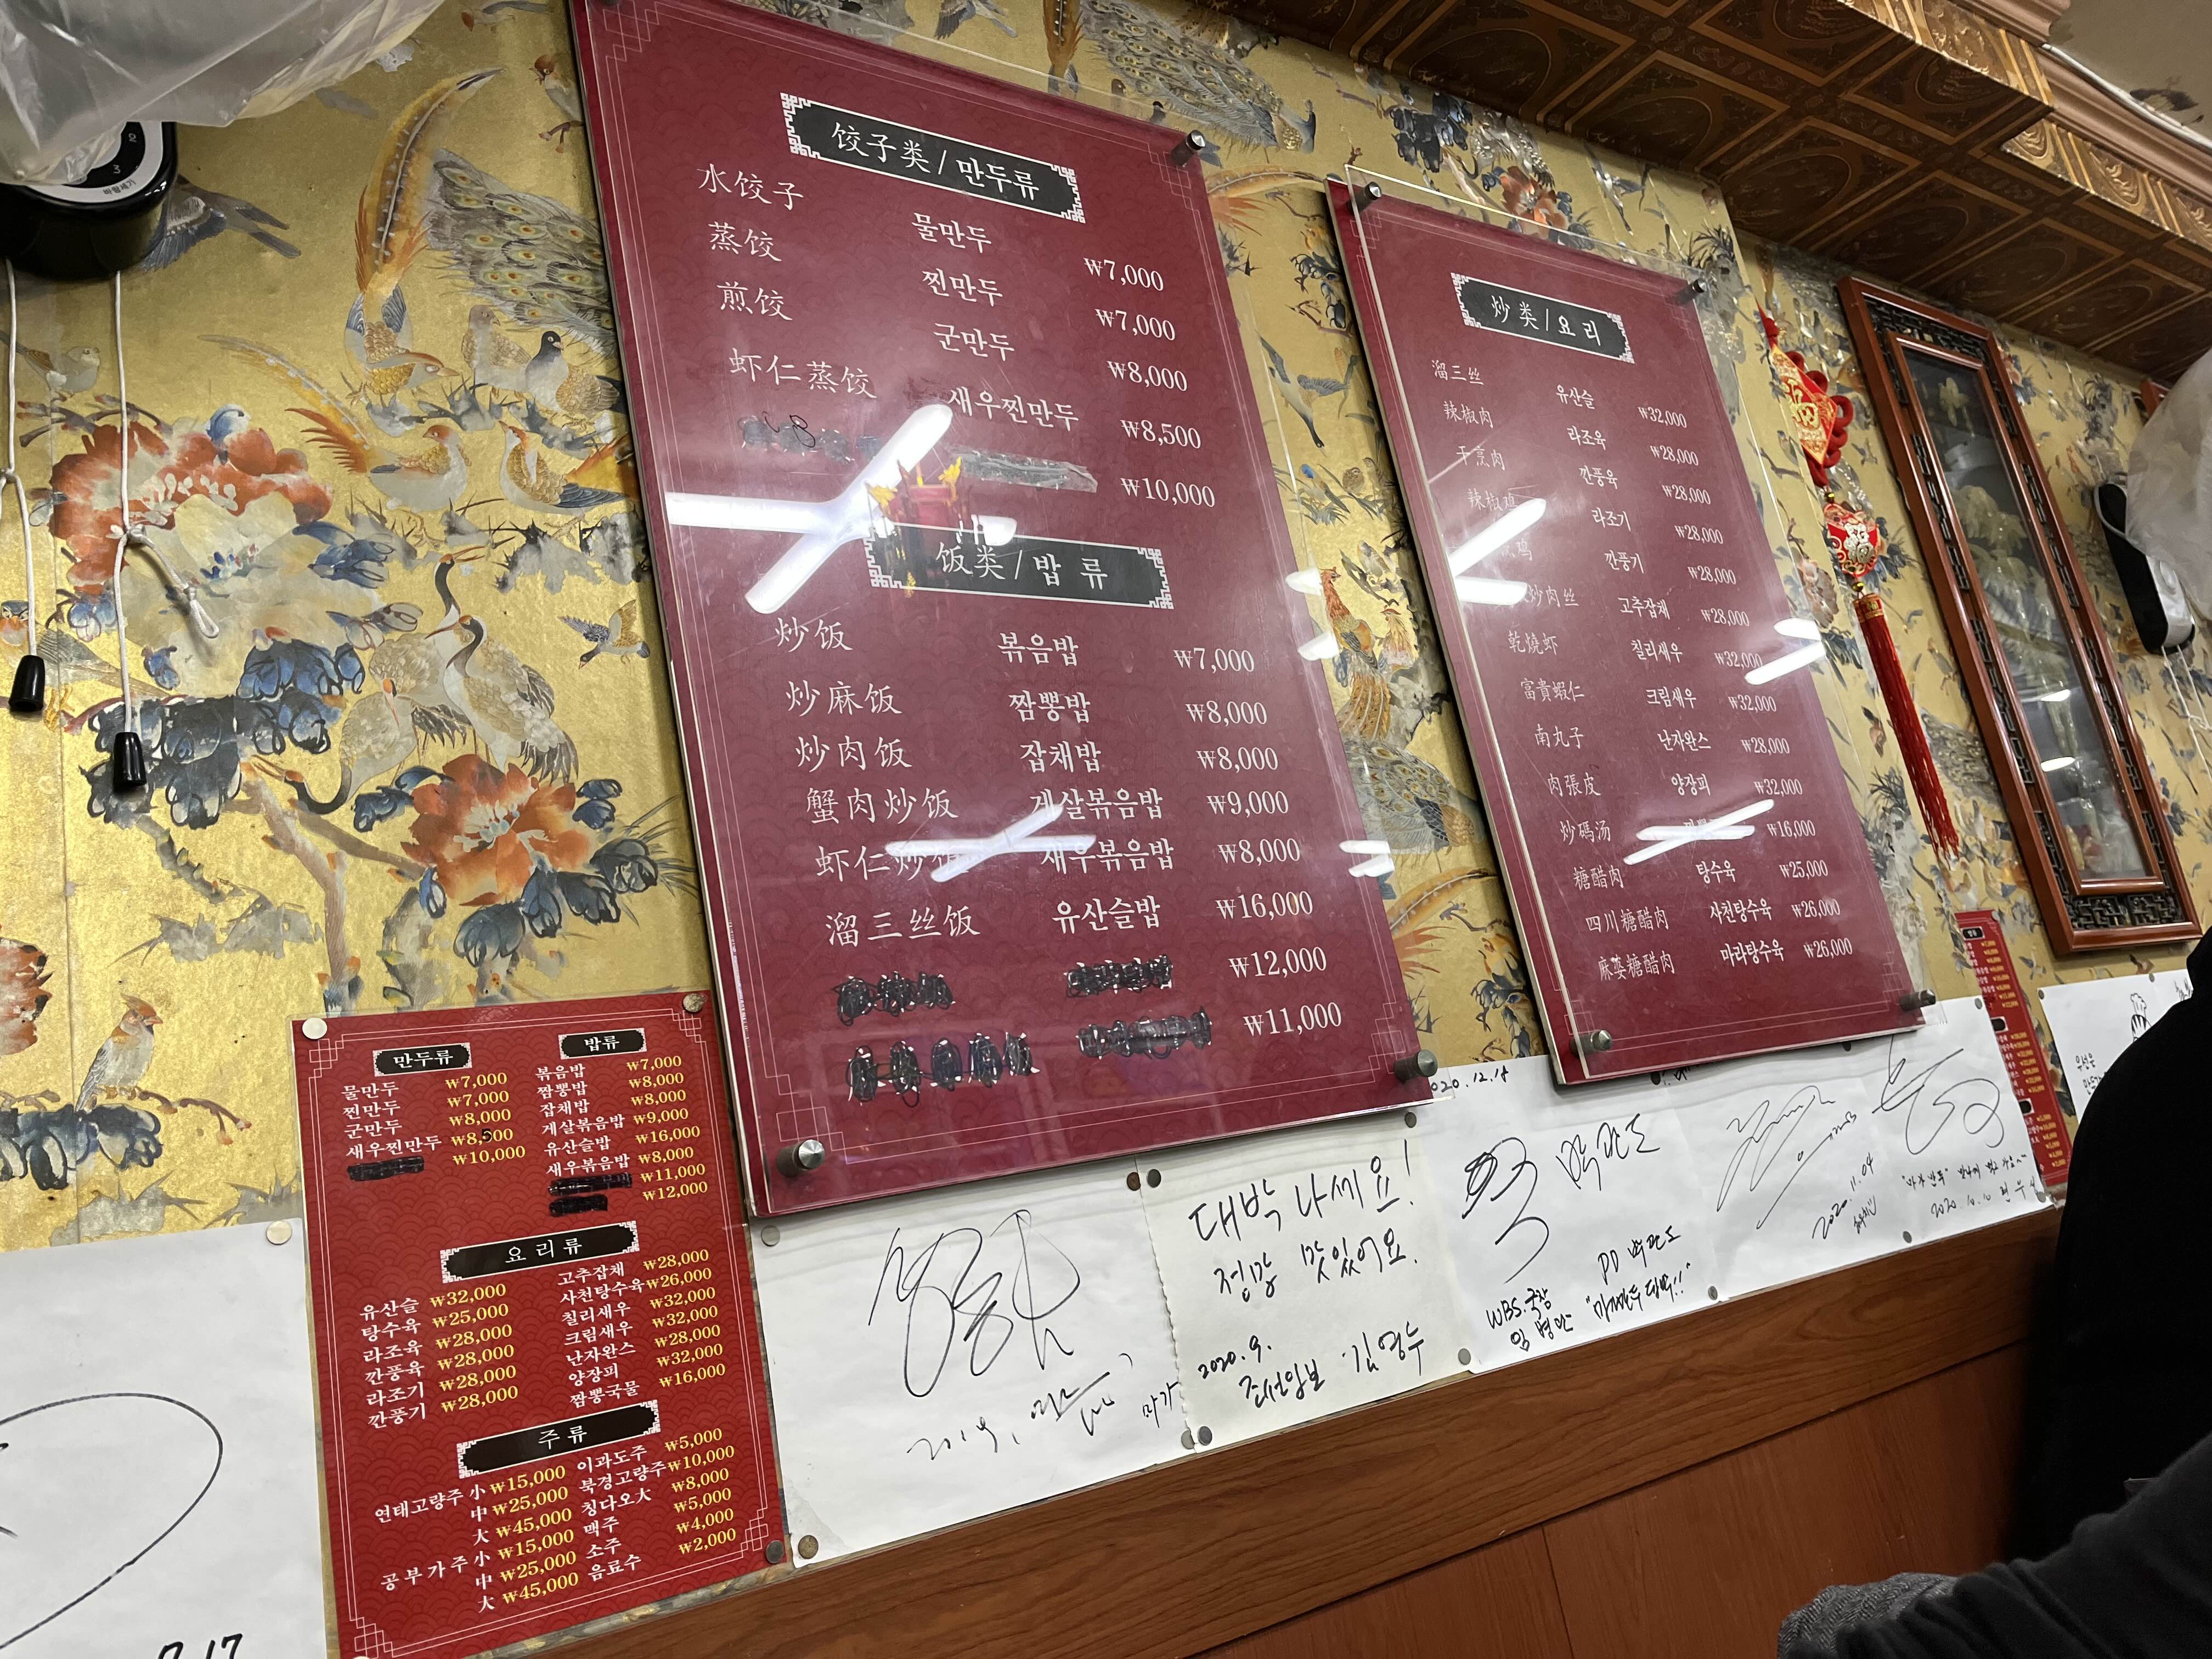 饺子类/만두류
水饺子 물만두 ₩7,000
蒸饺 찐만두 ₩7,000
煎饺 군만두 ₩8,000
虾仁蒸饺 새우찐만두 ₩8,500
₩10,000
饭类/밥 류
炒饭 볶음밥 ₩7,000
炒麻饭 짬뽕밥 ₩8,000
炒肉饭 잡채밥 ₩8,000
蟹肉炒饭 게살볶음밥 ₩9,000
虾仁炒 새우볶음밥 ₩8,000
溜三丝饭 유산슬밥 ₩16,000
₩12,000
₩11,000
炒类/요리
溜三丝 유산슬 ₩32,000
辣椒肉 라조육 ₩28,000
干烹肉 깐풍육 ₩28,000
辣椒鸡 라조기 ₩28,000
鸡 깐풍기 ₩28,000
炒肉丝 고추잡채 ₩28,000
乾燒虾 칠리새우 ₩32,000
富貴蝦仁 크림새우 ₩32,000
南丸子 난자완스 ₩28,000
肉張皮 양장피 ₩32,000
炒碼汤 ₩16,000
糖醋肉 탕수육 ₩25,000
四川糖醋肉 사천탕수육 ₩26,000
麻婆糖醋肉 마라탕수육 ₩26,000
만두류
물만두 ₩7,000
찐만두 ₩7,000
군만두 ₩8,000
새우찐만두 ₩8,500
₩10,000
밥류
볶음밥 ₩7,000
짬뽕밥 ₩8,000
잡채밥 ₩8,000
게살볶음밥 ₩9,000
유산슬밥 ₩16,000
새우볶음밥 ₩8,000
₩11,000
₩12,000
요리류
유산슬 ₩32,000
탕수육 ₩25,000
라조육 ₩28,000
깐풍육 ₩28,000
라조기 ₩28,000
깐풍기 ₩28,000
고추잡채 ₩28,000
사천탕수육 ₩26,000
칠리새우 ₩32,000
크림새우 ₩32,000
난자완스 ₩28,000
양장피 ₩32,000
짬뽕국물 ₩16,000
주류
연태고량주 小 ₩15,000
中 ₩25,000
大 ₩45,000
공부가주 小 ₩15,000
中 ₩25,000
大 ₩45,000
이과도주 ₩5,000
북경고량주 ₩10,000
칭다오大 ₩8,000
맥주 ₩5,000
소주 ₩4,000
음료수 ₩2,000
대박 나세요!
정말 맛있어요.
2020.9.
조선일보 김영수
2020.12.18
WBS.국장
PD
2020.11.04
2020.10.10
7.17
바람세기
3